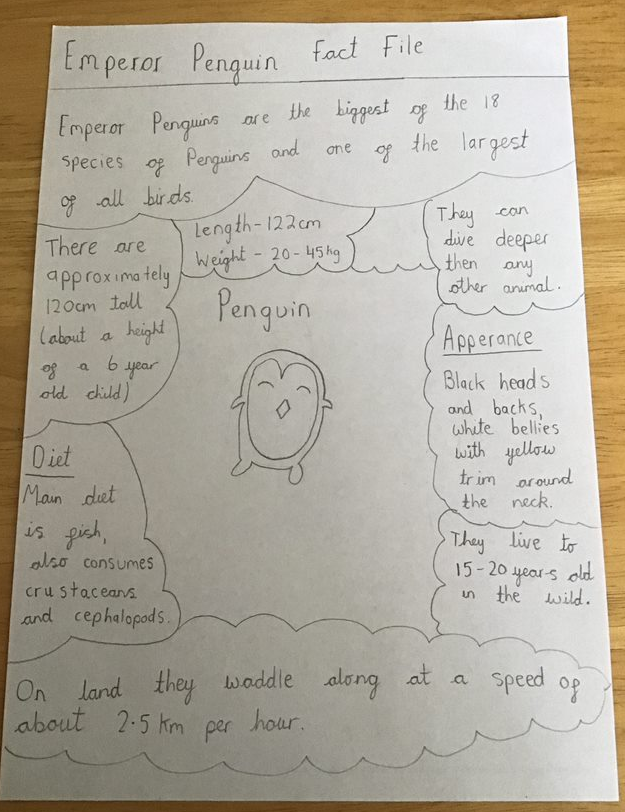 Emperor Penguin Fact File
Emperor Penguins are the biggest of the 18
species of Penguins and one of the largest
of all birds.
Length - 122cm
Weight - 20 - 45kg
They can
dive deeper
then any
other animal.
There are
approximately
120cm tall
(about a height
of a 6 year
old child)
Penguin
Apperance
Black heads
and backs,
white bellies
with yellow
trim around
the neck.
Diet
Main diet
is fish,
also consumes
crustaceans
and cephalopods.
They live to
15-20 years old
in the wild.
On land they waddle along at a speed of
about 2.5 km per hour.